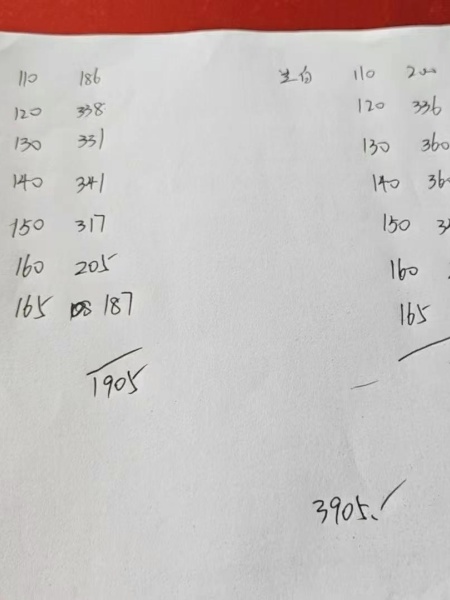 110 186
120 338
130 331
140 341
150 317
160 205
165 187
1905
生白 110 200
120 336
130 360
140 36
150 3
160
165
3905.